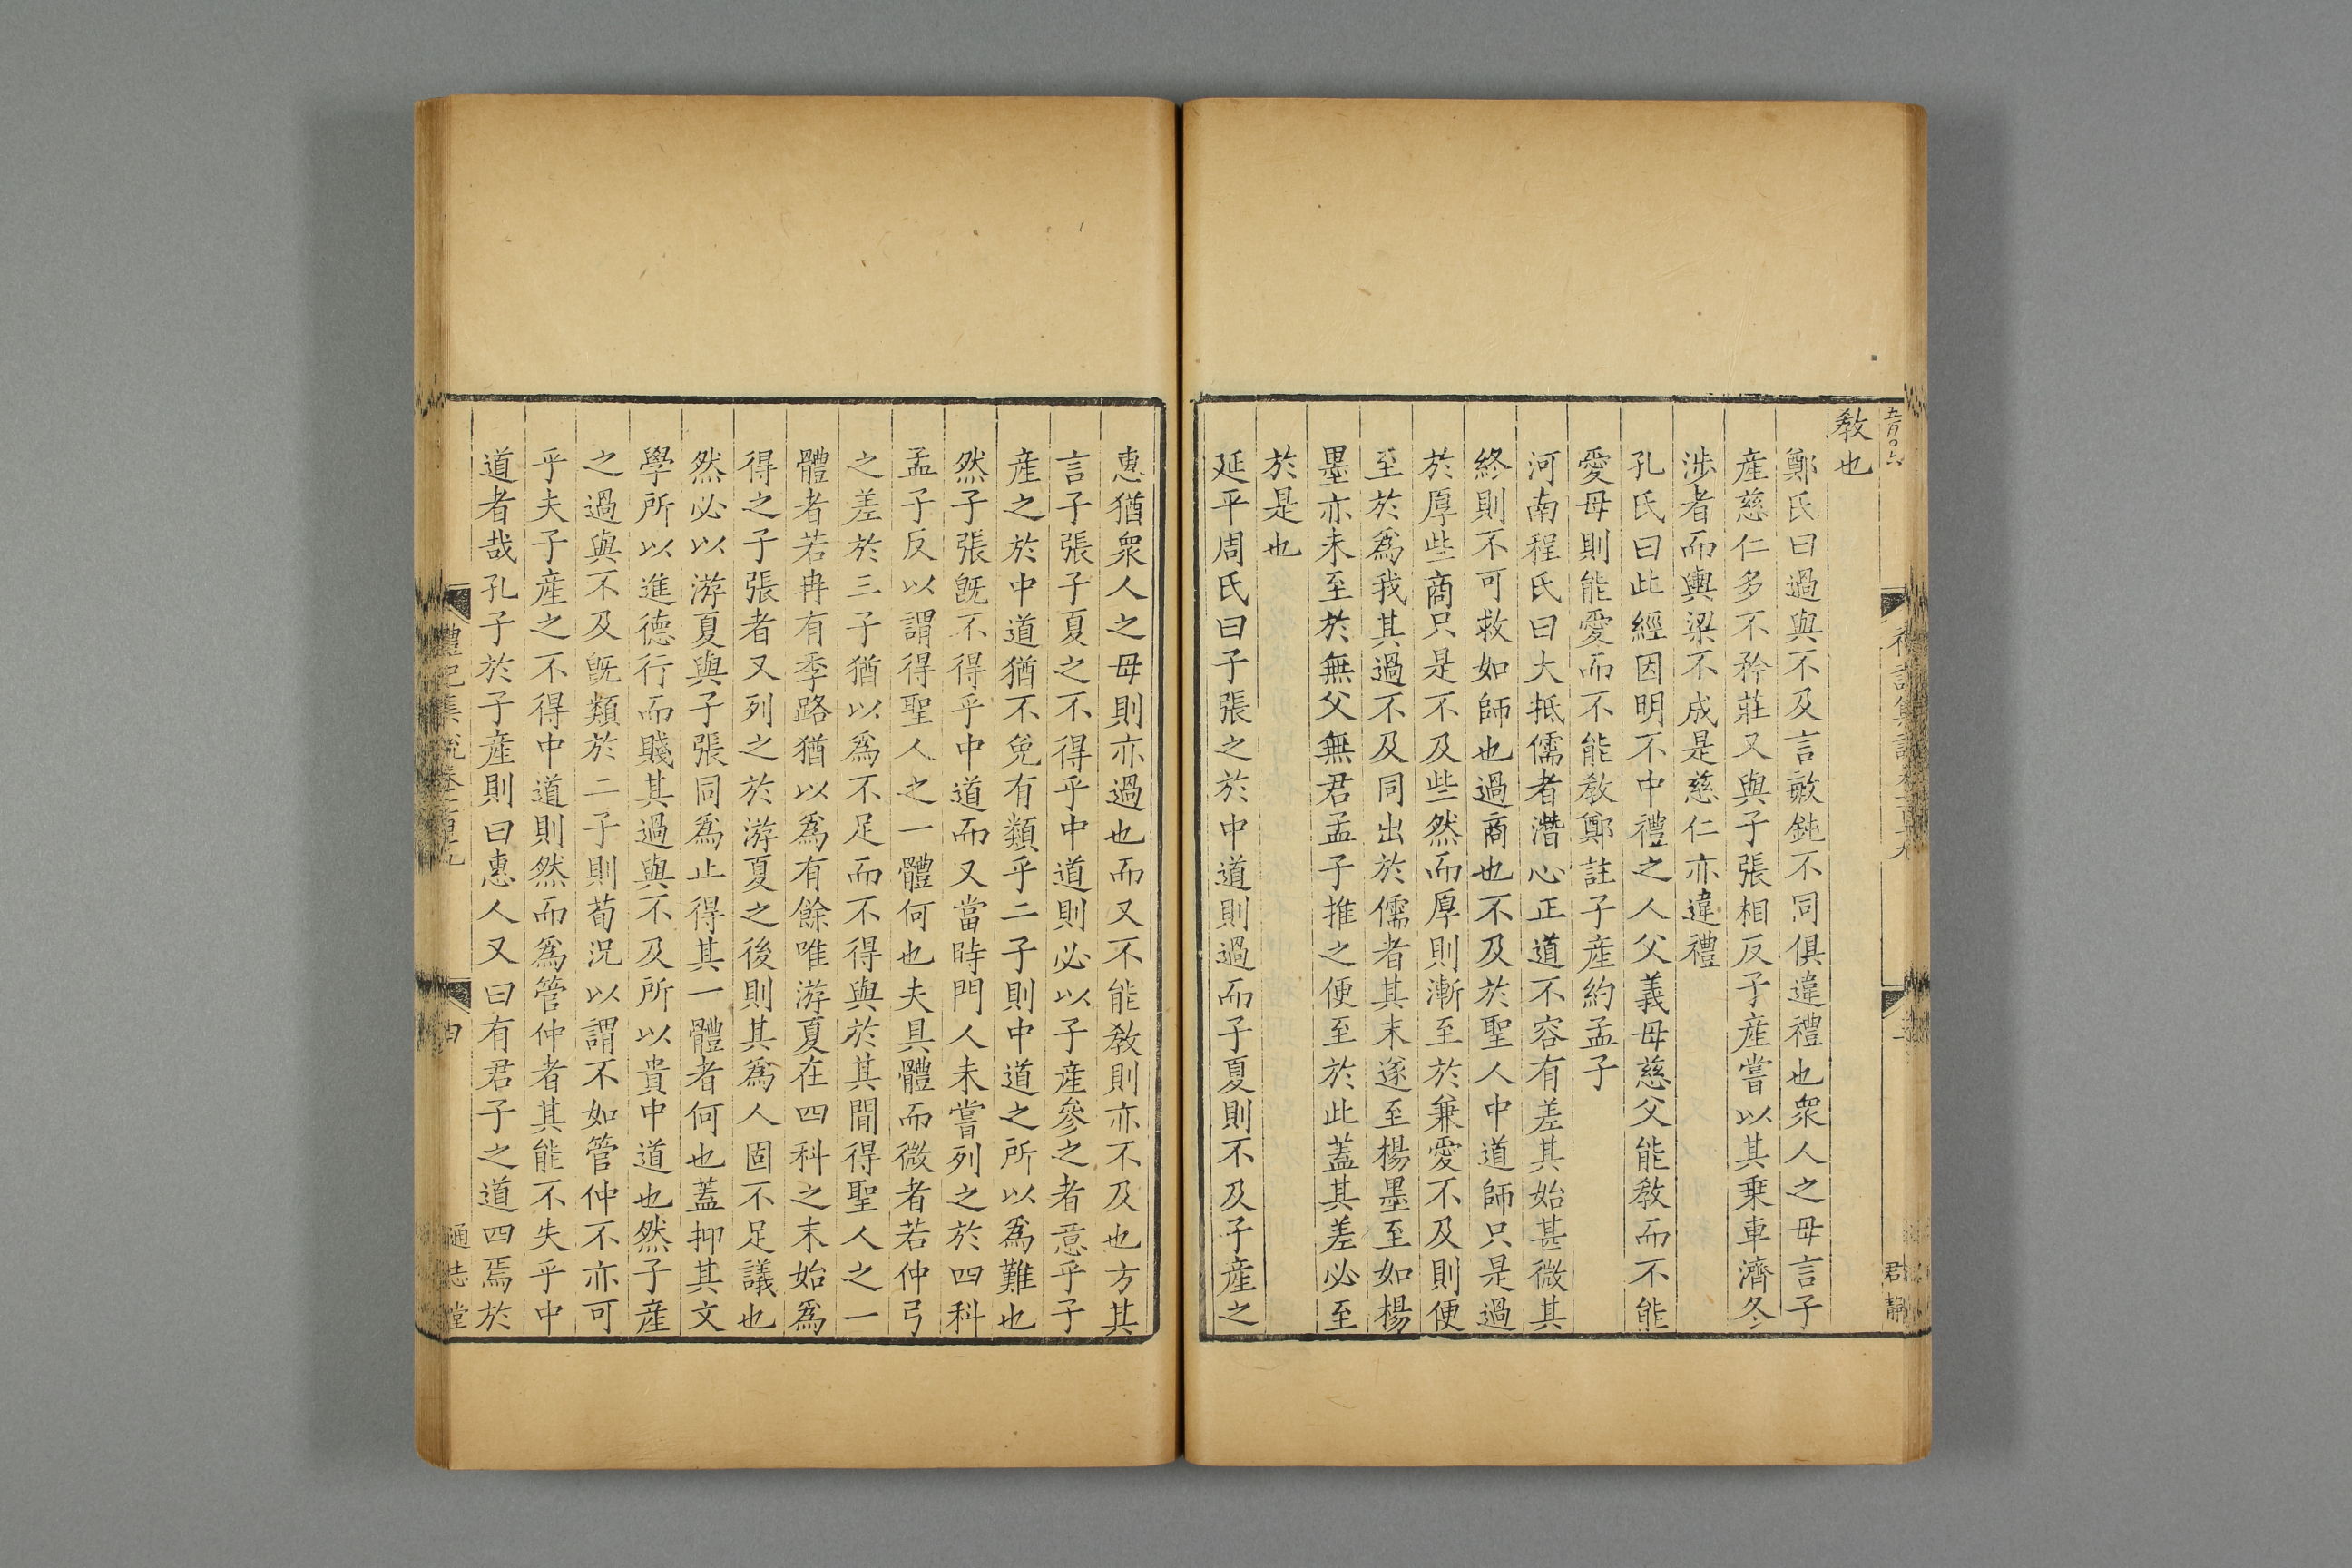 教也
鄭氏曰過與不及言敏鈍不同俱違禮也衆人之母言子
產慈仁多不矜莊又與子張相反子產嘗以其乗車濟冬
涉者而輿梁不成是慈仁亦違禮
孔氏曰此經因明不中禮之人父義母慈父能教而不能
愛母則能愛而不能教鄭註子產約孟子
河南程氏曰大抵儒者潛心正道不容有差其始甚微其
終則不可救如師也過商也不及於聖人中道師只是過
於厚些商只是不及些然而厚則漸至於兼愛不及則便
至於爲我其過不及同出於儒者其末遂至楊墨至如楊
墨亦未至於無父無君孟子推之便至於此蓋其差必至
於是也
延平周氏曰子張之於中道則過而子夏則不及子產之
惠猶衆人之母則亦過也而又不能教則亦不及也方其
言子張子夏之不得乎中道則必以子產參之者意乎子
產之於中道猶不免有類乎二子則中道之所以爲難也
然子張旣不得乎中道而又當時門人未嘗列之於四科
孟子反以謂得聖人之一體何也夫具體而微者若仲弓
之差於三子猶以爲不足而不得與於其間得聖人之一
體者若冉有季路猶以爲有餘唯游夏在四科之末始爲
得之子張者又列之於游夏之後則其爲人固不足議也
然必以游夏與子張同爲止得其一體者何也蓋抑其文
學所以進德行而賤其過與不及所以貴中道也然子產
之過與不及旣類於二子則荀況以謂不如管仲不亦可
乎夫子產之不得中道則然而爲管仲者其能不失乎中
道者哉孔子於子產則曰惠人又曰有君子之道四焉於
禮記集說卷一百十九
四
通志堂